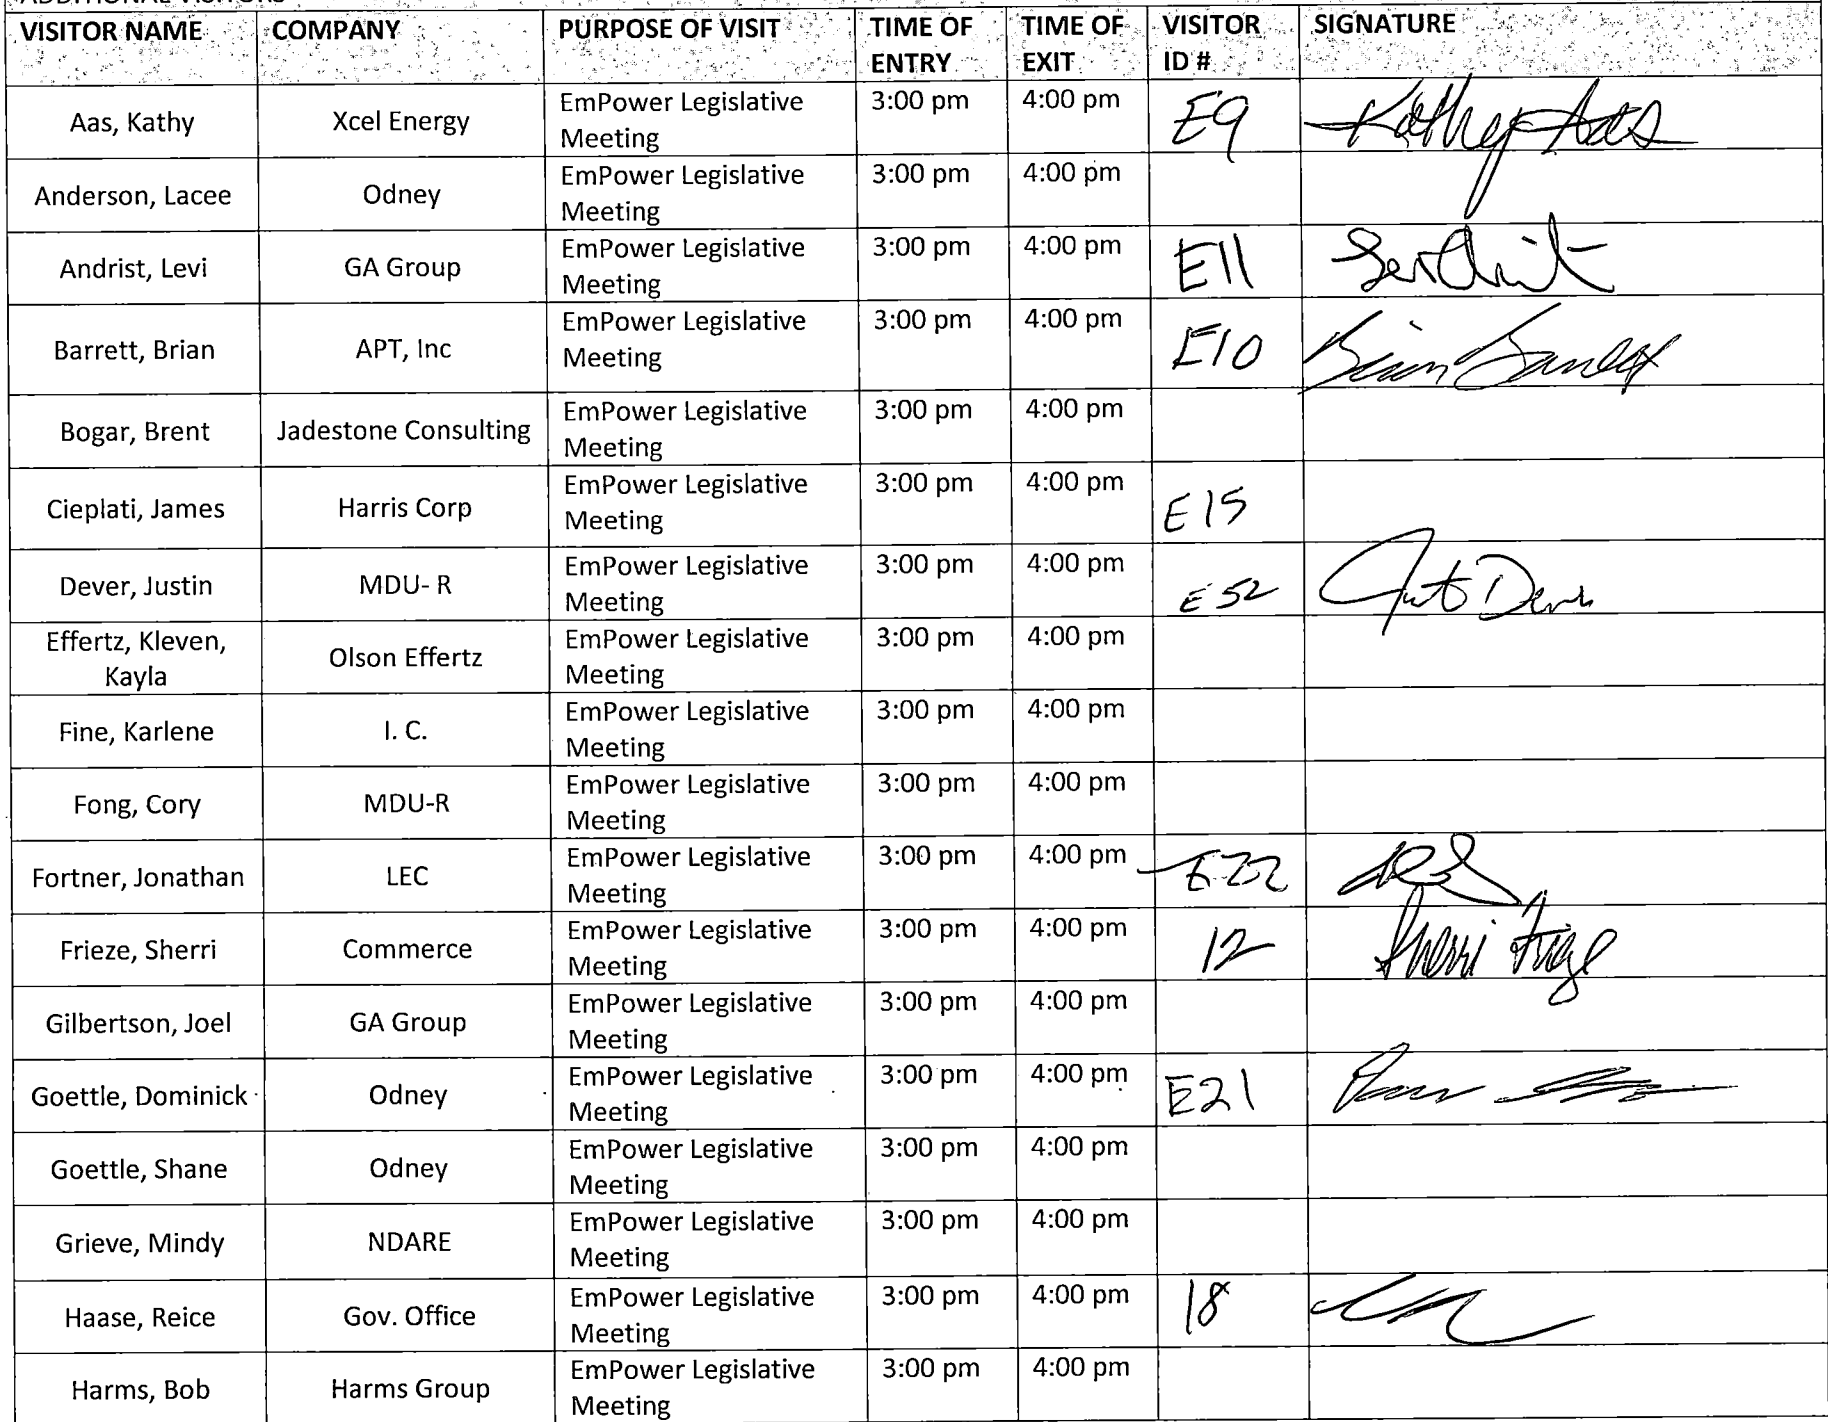 ADDITIONAL VISITORS
VISITOR NAME COMPANY PURPOSE OF VISIT TIME OF ENTRY TIME OF EXIT VISITOR ID # SIGNATURE
Aas, Kathy Xcel Energy EmPower Legislative Meeting 3:00 pm 4:00 pm E9 Kathy Aas
Anderson, Lacee Odney EmPower Legislative Meeting 3:00 pm 4:00 pm
Andrist, Levi GA Group EmPower Legislative Meeting 3:00 pm 4:00 pm E11
Barrett, Brian APT, Inc EmPower Legislative Meeting 3:00 pm 4:00 pm E10 Brian Barrett
Bogar, Brent Jadestone Consulting EmPower Legislative Meeting 3:00 pm 4:00 pm
Cieplati, James Harris Corp EmPower Legislative Meeting 3:00 pm 4:00 pm E15
Dever, Justin MDU- R EmPower Legislative Meeting 3:00 pm 4:00 pm E52
Effertz, Kleven, Kayla Olson Effertz EmPower Legislative Meeting 3:00 pm 4:00 pm
Fine, Karlene I. C. EmPower Legislative Meeting 3:00 pm 4:00 pm
Fong, Cory MDU-R EmPower Legislative Meeting 3:00 pm 4:00 pm
Fortner, Jonathan LEC EmPower Legislative Meeting 3:00 pm 4:00 pm E22
Frieze, Sherri Commerce EmPower Legislative Meeting 3:00 pm 4:00 pm 12 Sherri Frieze
Gilbertson, Joel GA Group EmPower Legislative Meeting 3:00 pm 4:00 pm
Goettle, Dominick Odney EmPower Legislative Meeting 3:00 pm 4:00 pm E21
Goettle, Shane Odney EmPower Legislative Meeting 3:00 pm 4:00 pm
Grieve, Mindy NDARE EmPower Legislative Meeting 3:00 pm 4:00 pm
Haase, Reice Gov. Office EmPower Legislative Meeting 3:00 pm 4:00 pm 18
Harms, Bob Harms Group EmPower Legislative Meeting 3:00 pm 4:00 pm